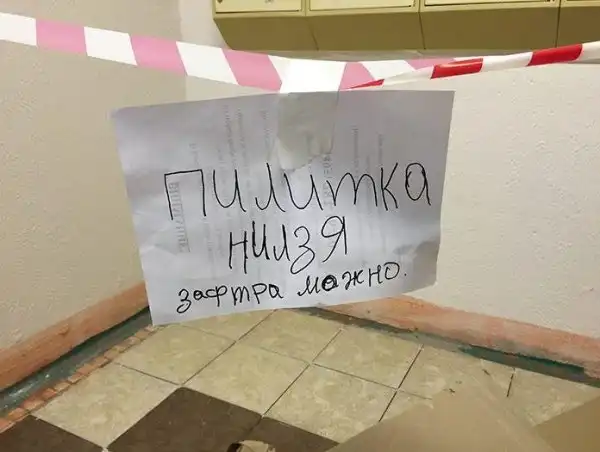 пилитка
нилзя
зафтра мажно.